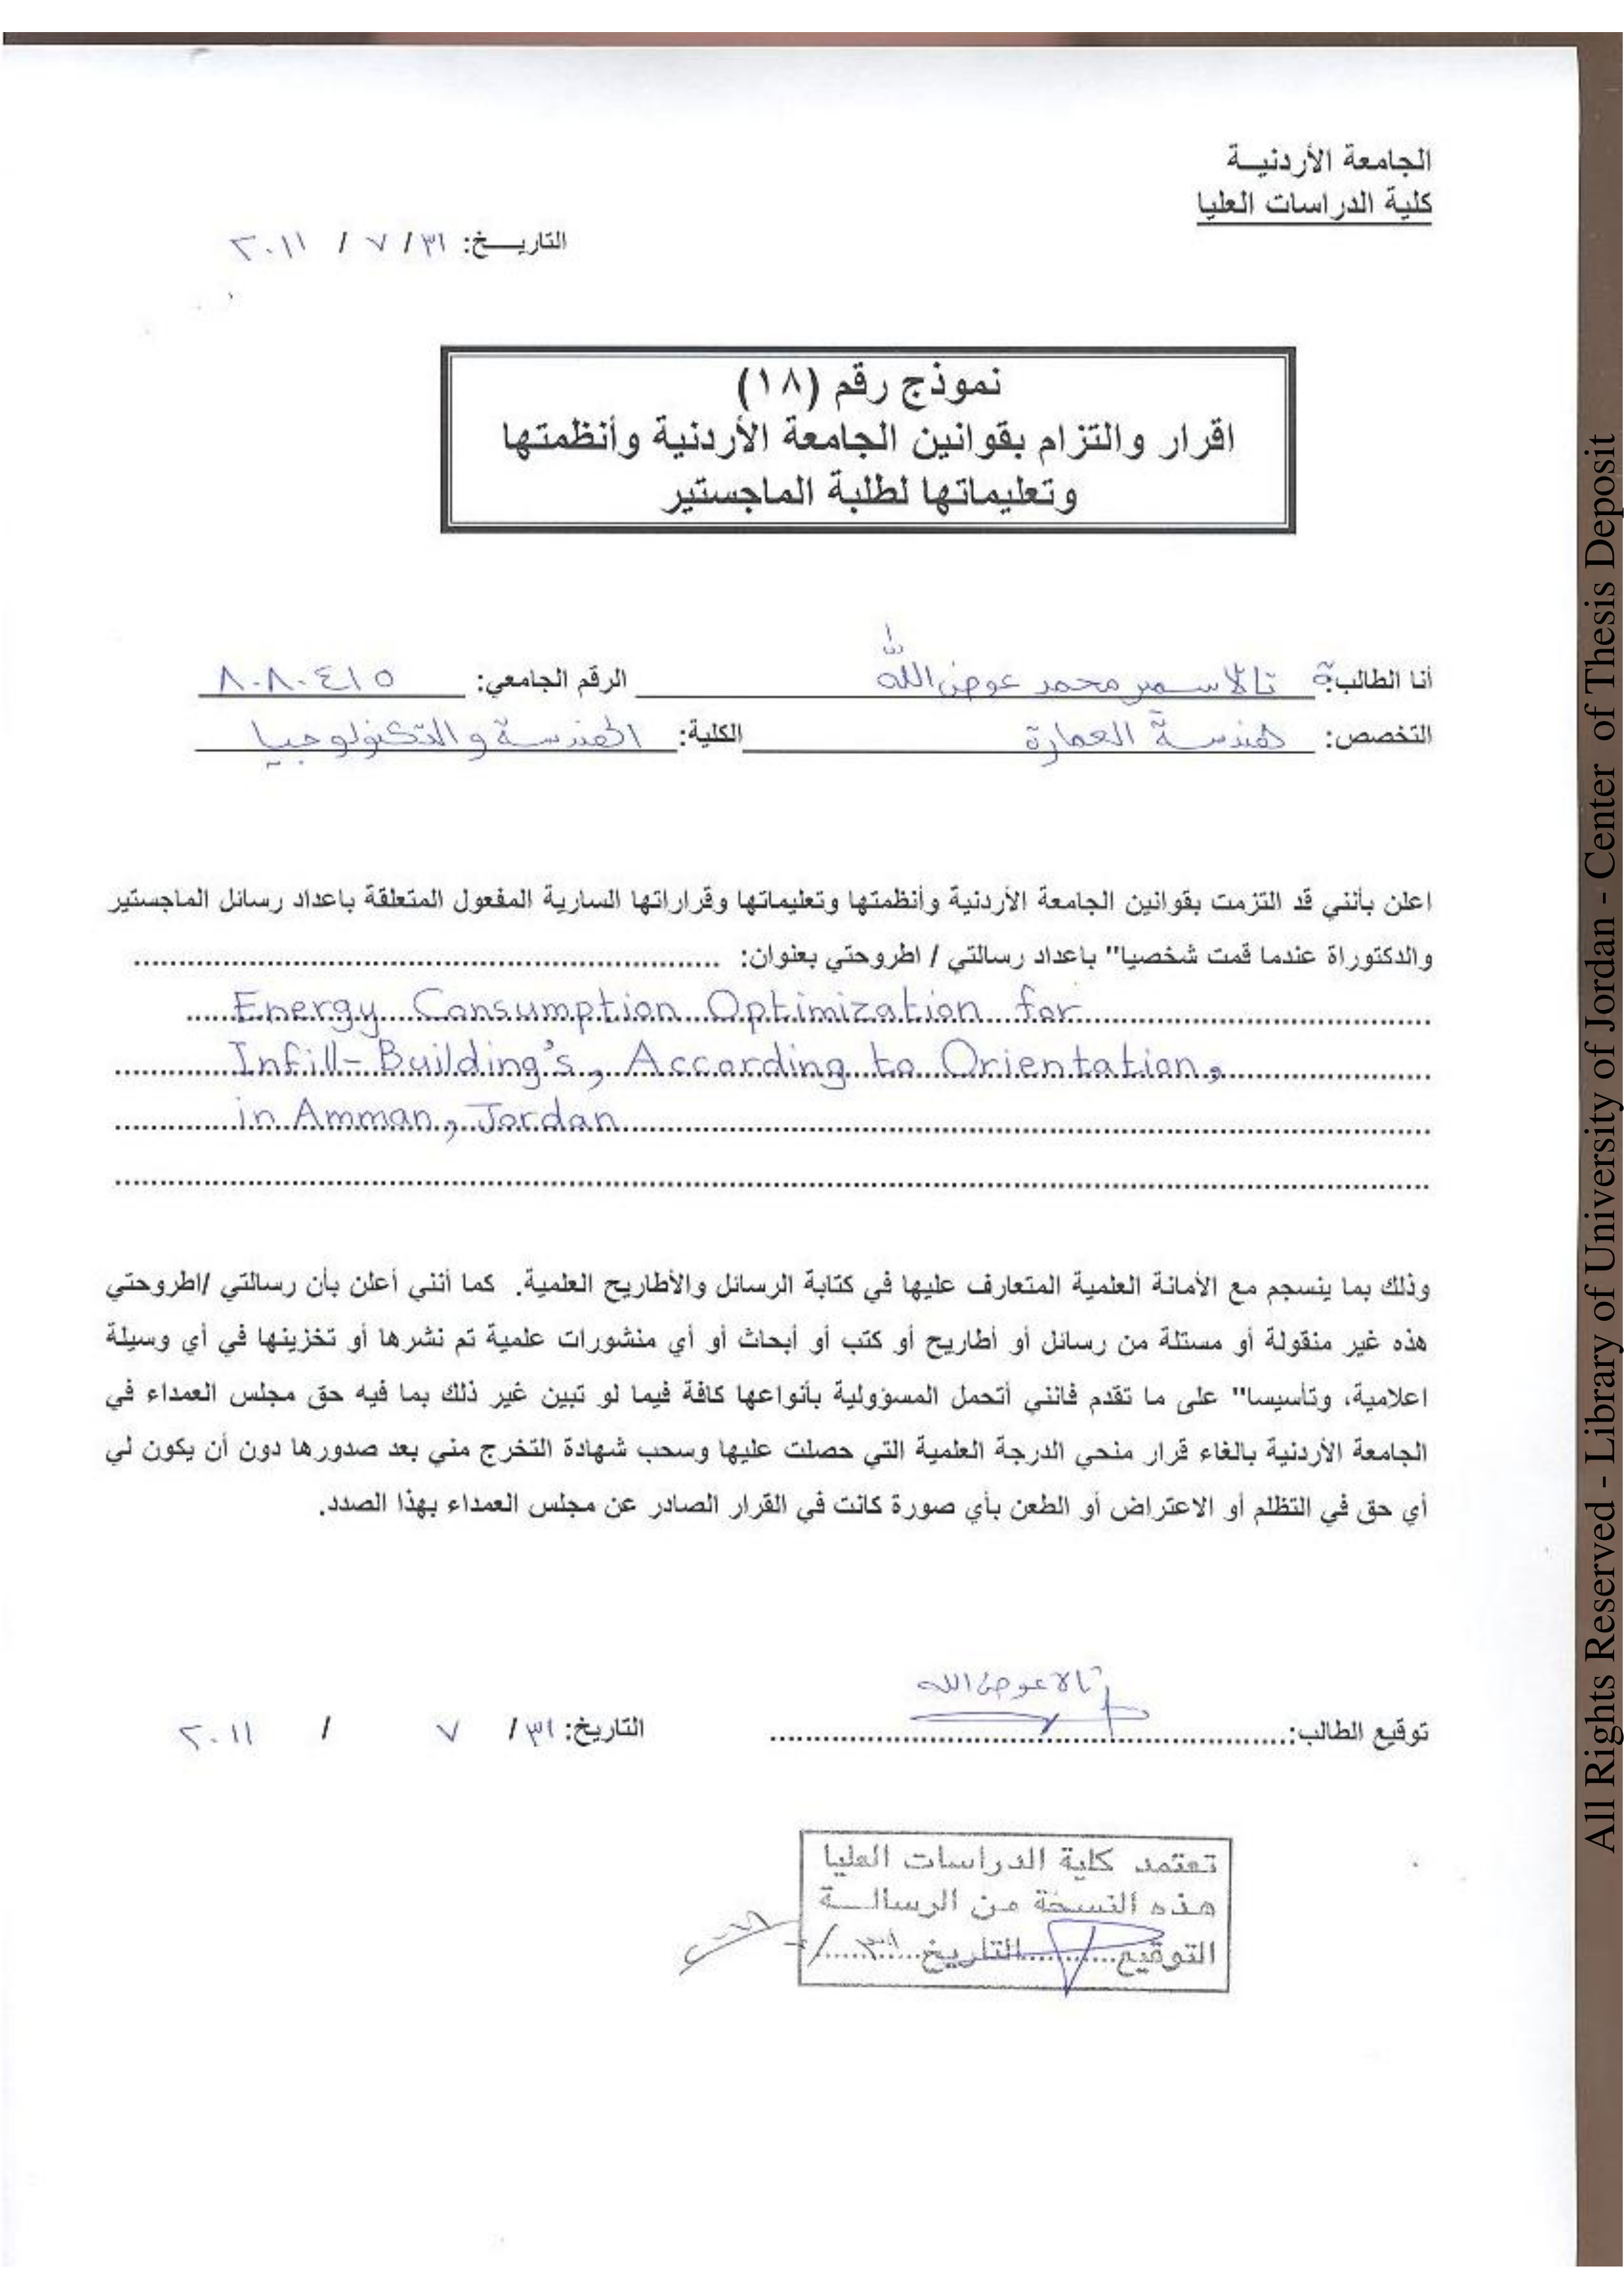 الجامعة الأردنيـة
كلية الدراسات العليا
التاريـخ: ٣١ / ٧ / ٢٠١١
نموذج رقم (١٨)
اقرار والتزام بقوانين الجامعة الأردنية وأنظمتها
وتعليماتها لطلبة الماجستير
أنا الطالبة: تالا سمير محمد عوض الله الرقم الجامعي: ٨٠٨٠٤١٥
التخصص: هندسة العمارة الكلية: الهندسة والتكنولوجيا
اعلن بأنني قد التزمت بقوانين الجامعة الأردنية وأنظمتها وتعليماتها وقراراتها السارية المفعول المتعلقة باعداد رسائل الماجستير
والدكتوراة عندما قمت شخصيا" باعداد رسالتي / اطروحتي بعنوان:
Energy Consumption Optimization for
Infill-Building's, According to Orientation,
in Amman, Jordan
وذلك بما ينسجم مع الأمانة العلمية المتعارف عليها في كتابة الرسائل والأطاريح العلمية. كما أنني أعلن بأن رسالتي /اطروحتي
هذه غير منقولة أو مستلة من رسائل أو أطاريح أو كتب أو أبحاث أو أي منشورات علمية تم نشرها أو تخزينها في أي وسيلة
اعلامية، وتأسيسا" على ما تقدم فانني أتحمل المسؤولية بأنواعها كافة فيما لو تبين غير ذلك بما فيه حق مجلس العمداء في
الجامعة الأردنية بالغاء قرار منحي الدرجة العلمية التي حصلت عليها وسحب شهادة التخرج مني بعد صدورها دون أن يكون لي
أي حق في التظلم أو الاعتراض أو الطعن بأي صورة كانت في القرار الصادر عن مجلس العمداء بهذا الصدد.
تالا عوض الله
توقيع الطالب: التاريخ: ٣١ / ٧ / ٢٠١١
تعتمد كلية الدراسات العليا
هذه النسخة من الرسالـــة
التوقيع التاريخ
All Rights Reserved - Library of University of Jordan - Center of Thesis Deposit